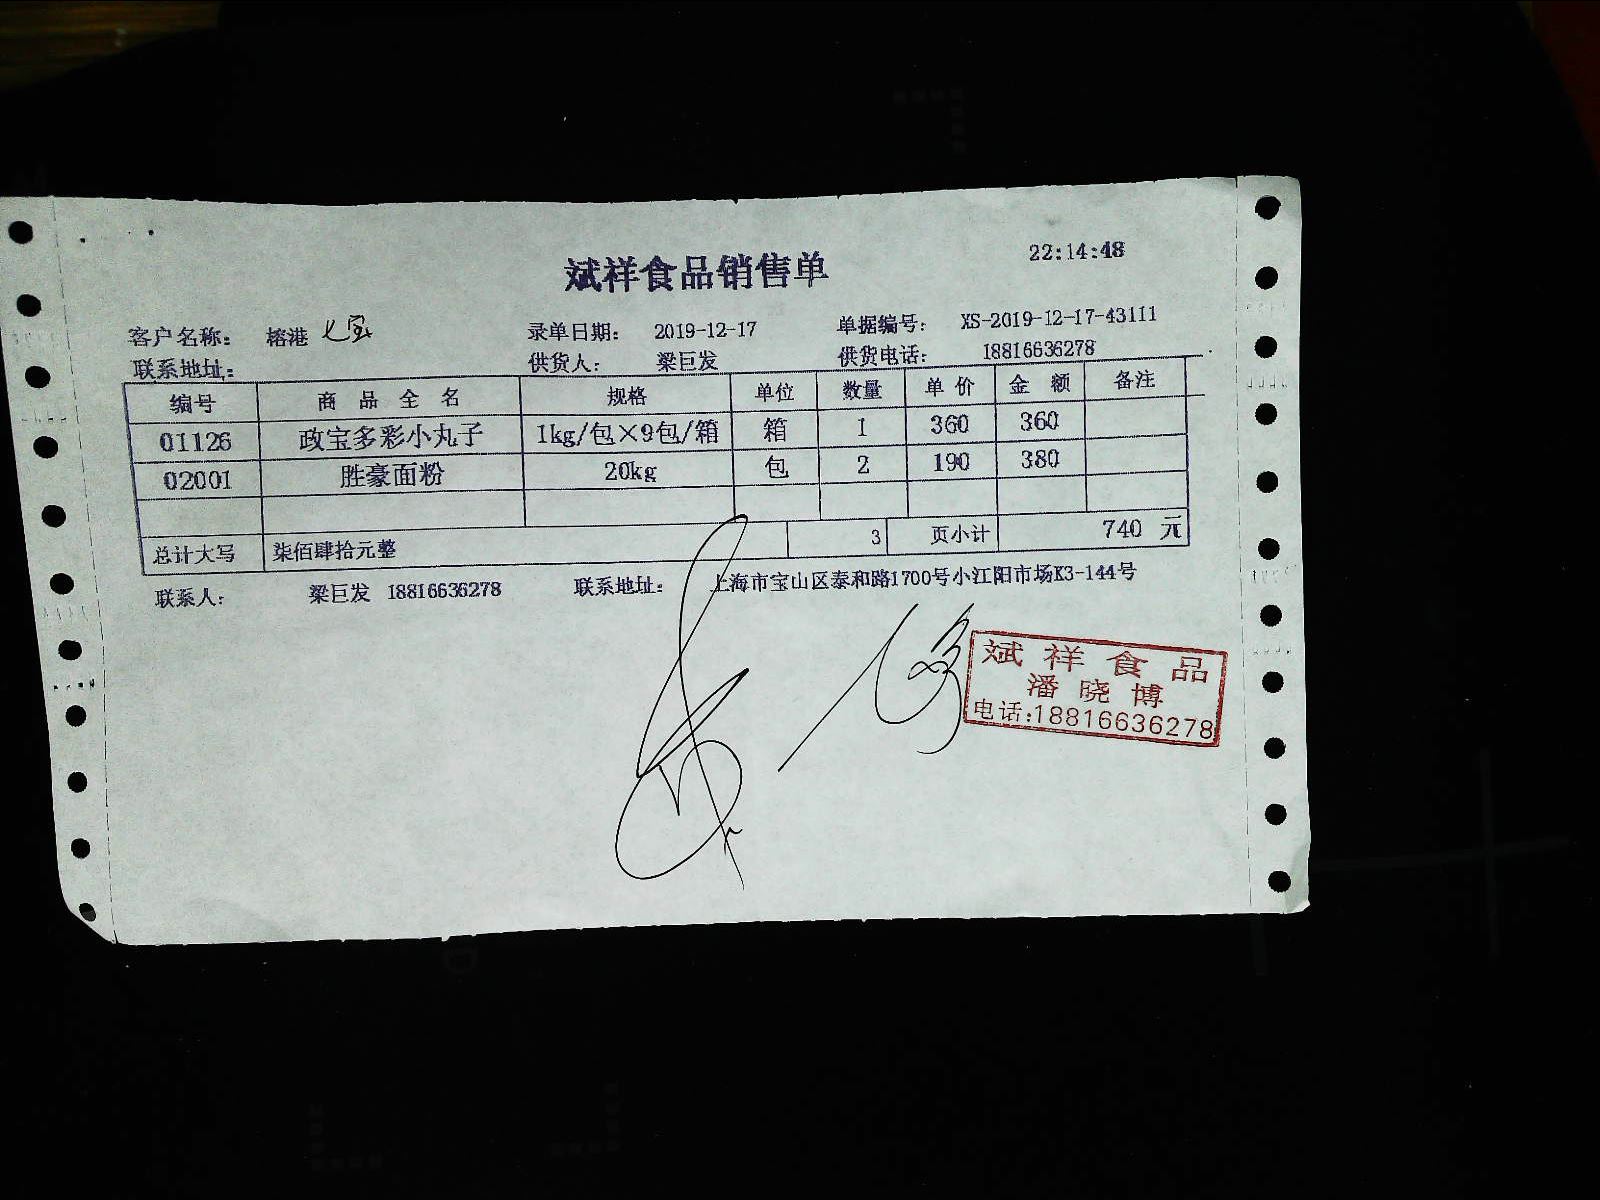 斌祥食品销售单
22:14:48
客户名称： 榕港 七宝 录单日期： 2019-12-17 单据编号： XS-2019-12-17-43111
联系地址： 供货人： 梁巨发 供货电话： 18816636278
编号 商品全名 规格 单位 数量 单价 金额 备注
01126 政宝多彩小丸子 1kg/包×9包/箱 箱 1 360 360
02001 胜豪面粉 20kg 包 2 190 380
总计大写 柒佰肆拾元整 3 页小计 740 元
联系人： 梁巨发 18816636278 联系地址： 上海市宝山区泰和路1700号小江阳市场K3-144号
斌祥食品
潘晓博
电话:18816636278